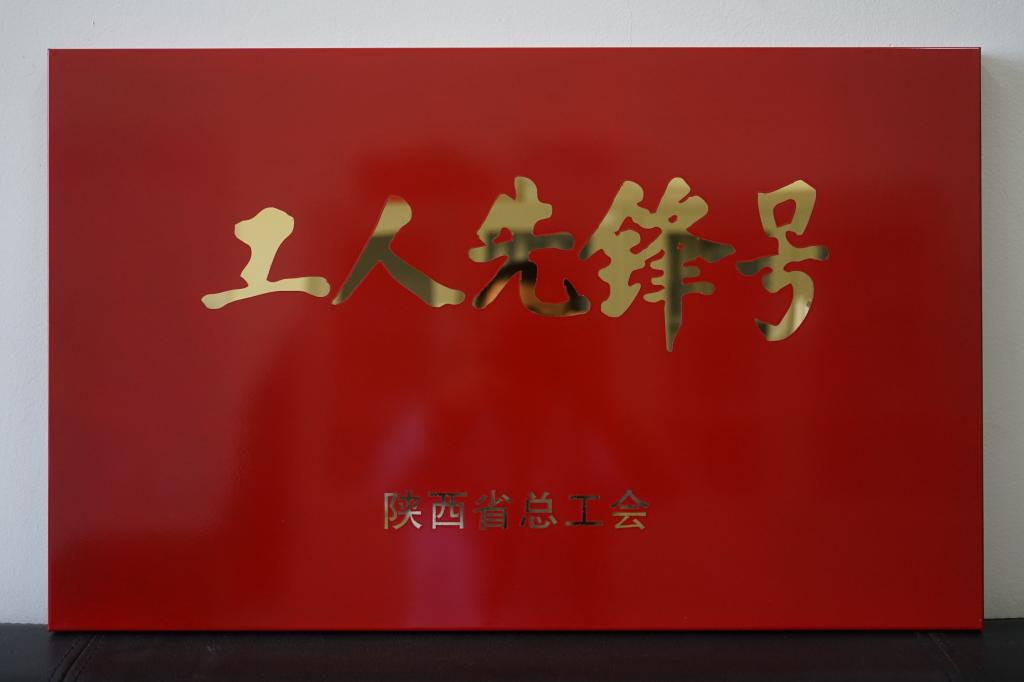 工人先锋号
陕西省总工会